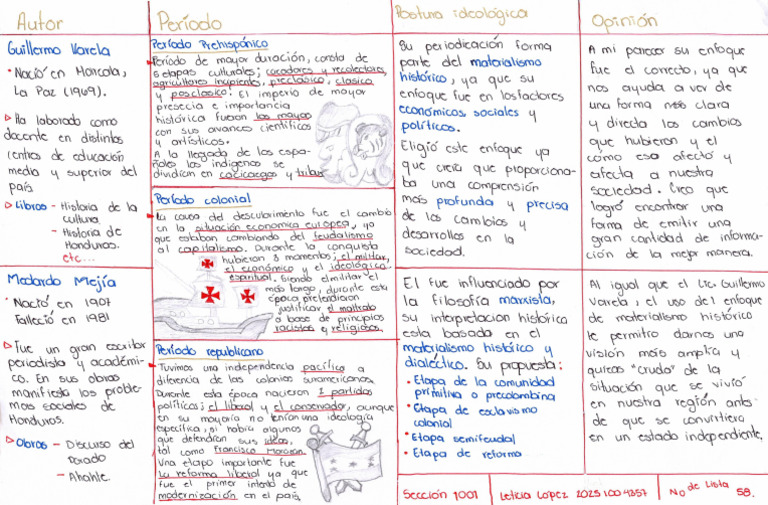 Autor
Guillermo Varela
• Nació en Marcala,
La Paz (1909).
▷ Ha laborado como
docente en distintos
centros de educación
media y superior del
país
▷ Libros - Historia de la
cultura
- Historia de
Honduras.
etc...
Medardo Mejía
• Nació en 1907
Falleció en 1981
▷ Fue un gran escritor
periodista y académi-
co. En sus obras
manifiesta los proble-
mas sociales de
Honduras.
▷ Obras - Discurso del
Dorado
- Ahahle.
Período
Período Prehispánico
Período de mayor duración, consta de
5 etapas culturales; cazadores y recolectores,
agricultores incipientes, preclásico, clásico
y posclásico. El imperio de mayor
presecia e importancia
histórica fueron los mayas
con sus avances científicos
y artísticos.
A la llegada de los espa-
ñoles los indígenas se
dividían en cacicazgos y tribus
Período colonial
La causa del descubrimiento fue el cambio
en la situación economica europea, ya
que estaban cambiando del feudalismo
al capitalismo. Durante la conquista
hubieron 3 momentos; el militar,
el económico y el ideológico
espiritual. Siendo el militar el
más largo, durante esta
época pretendieron
justificar el maltrato
a base de principios
racistas y religiosos.
Período republicano
Tuvimos una independencia pacífica a
diferencia de las colonias suramericanas.
Durante esta época nacieron 2 partidos
políticos; el liberal y el conservador, aunque
en su mayoría no tenían una ideología
específica, si había algunos
que defendían sus ideas,
tal como Francisco Morazán.
Una etapa importante fue
la reforma liberal ya que
fue el primer intento de
modernización en el país,
Postura ideológica
Su periodicación forma
parte del materialismo
histórico, ya que su
enfoque fue en los factores
económicos, sociales y
políticos.
Eligió este enfoque ya
que creía que proporciona-
ba una comprensión
más profunda y precisa
de los cambios y
desarrollos en la
sociedad.
El fue influenciado por
la filosofía marxista,
su interpretacion histórica
esta basado en el
materialismo histórico y
dialéctico. Su propuesta:
• Etapa de la comunidad
primitiva o precolombina
• Etapa de esclavismo
colonial
• Etapa semifeudal
• Etapa de reforma
Opinión
A mi parecer su enfoque
fue lo correcto, ya que
nos ayuda a ver de
una forma más clara
y directa los cambios
que hubieron y el
cómo eso afectó y
afecta a nuestra
sociedad. Creo que
logró encontrar una
forma de emitir una
gran cantidad de informa-
ción de la mejor manera.
Al igual que el Lic. Guillermo
Varela, el uso del enfoque
de materialismo histórico
le permitro darnos una
visión más amplia y
quizas "cruda" de la
situación que se vivió
en nuestra región antes
de que se convirtiera
en un estado independiente.
Sección 1001
Leticia López 20251004357
No de Lista
58.